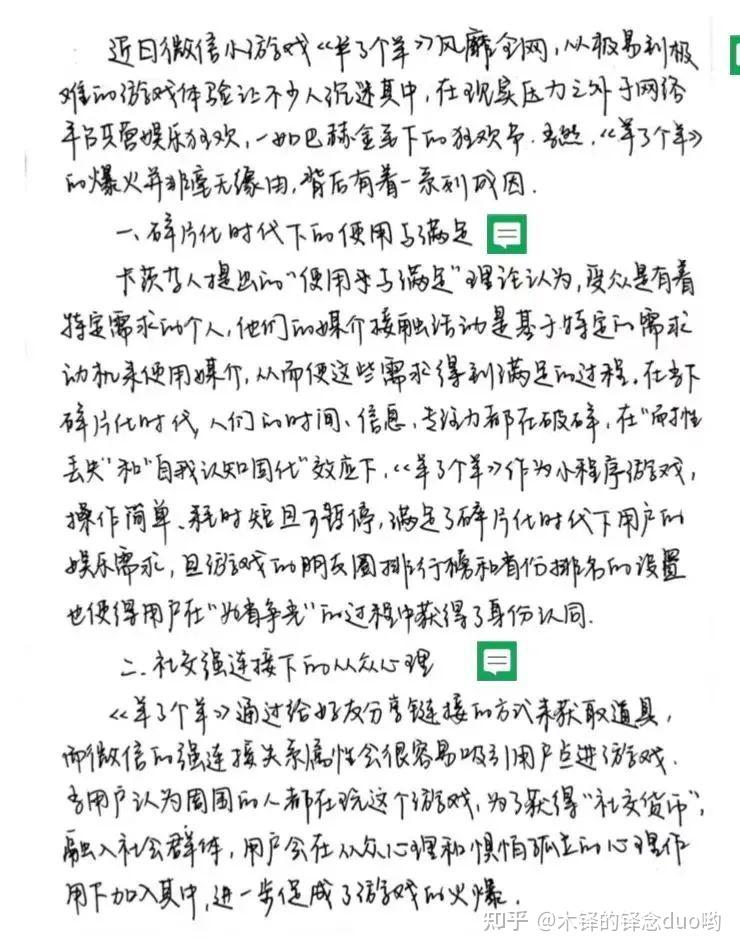 近日微信小游戏《羊了个羊》风靡全网，从极易到极
难的游戏体验让不少人沉迷其中，在现实压力之外于网络
平台共享娱乐狂欢，一如巴赫金笔下的狂欢节。当然，《羊了个羊》
的爆火并非毫无缘由，背后有着一系列成因．
一、碎片化时代下的使用与满足
卡茨等人提出的“使用与满足”理论认为，受众是有着
特定需求的个人，他们的媒介接触活动是基于特定的需求
动机来使用媒介，从而使这些需求得到满足的过程。在当下
碎片化时代，人们的时间、信息、专注力都在破碎，在“耐性
丢失”和“自我认知固化”效应下，《羊了个羊》作为小程序游戏，
操作简单、耗时短且可暂停，满足了碎片化时代下用户的
娱乐需求，且游戏的朋友圈排行榜和省份排名的设置
也使得用户在“为省争光”的过程中获得了身份认同．
二、社交强连接下的从众心理
《羊了个羊》通过给好友分享链接的方式来获取道具，
而微信的强连接关系属性会很容易吸引用户点进游戏．
当用户认为周围的人都在玩这个游戏，为了获得“社交货币”，
融入社会群体，用户会在从众心理和惧怕孤立的心理作
用下加入其中，进一步促成了游戏的火爆．
知乎 @木铎的铎念duo哟